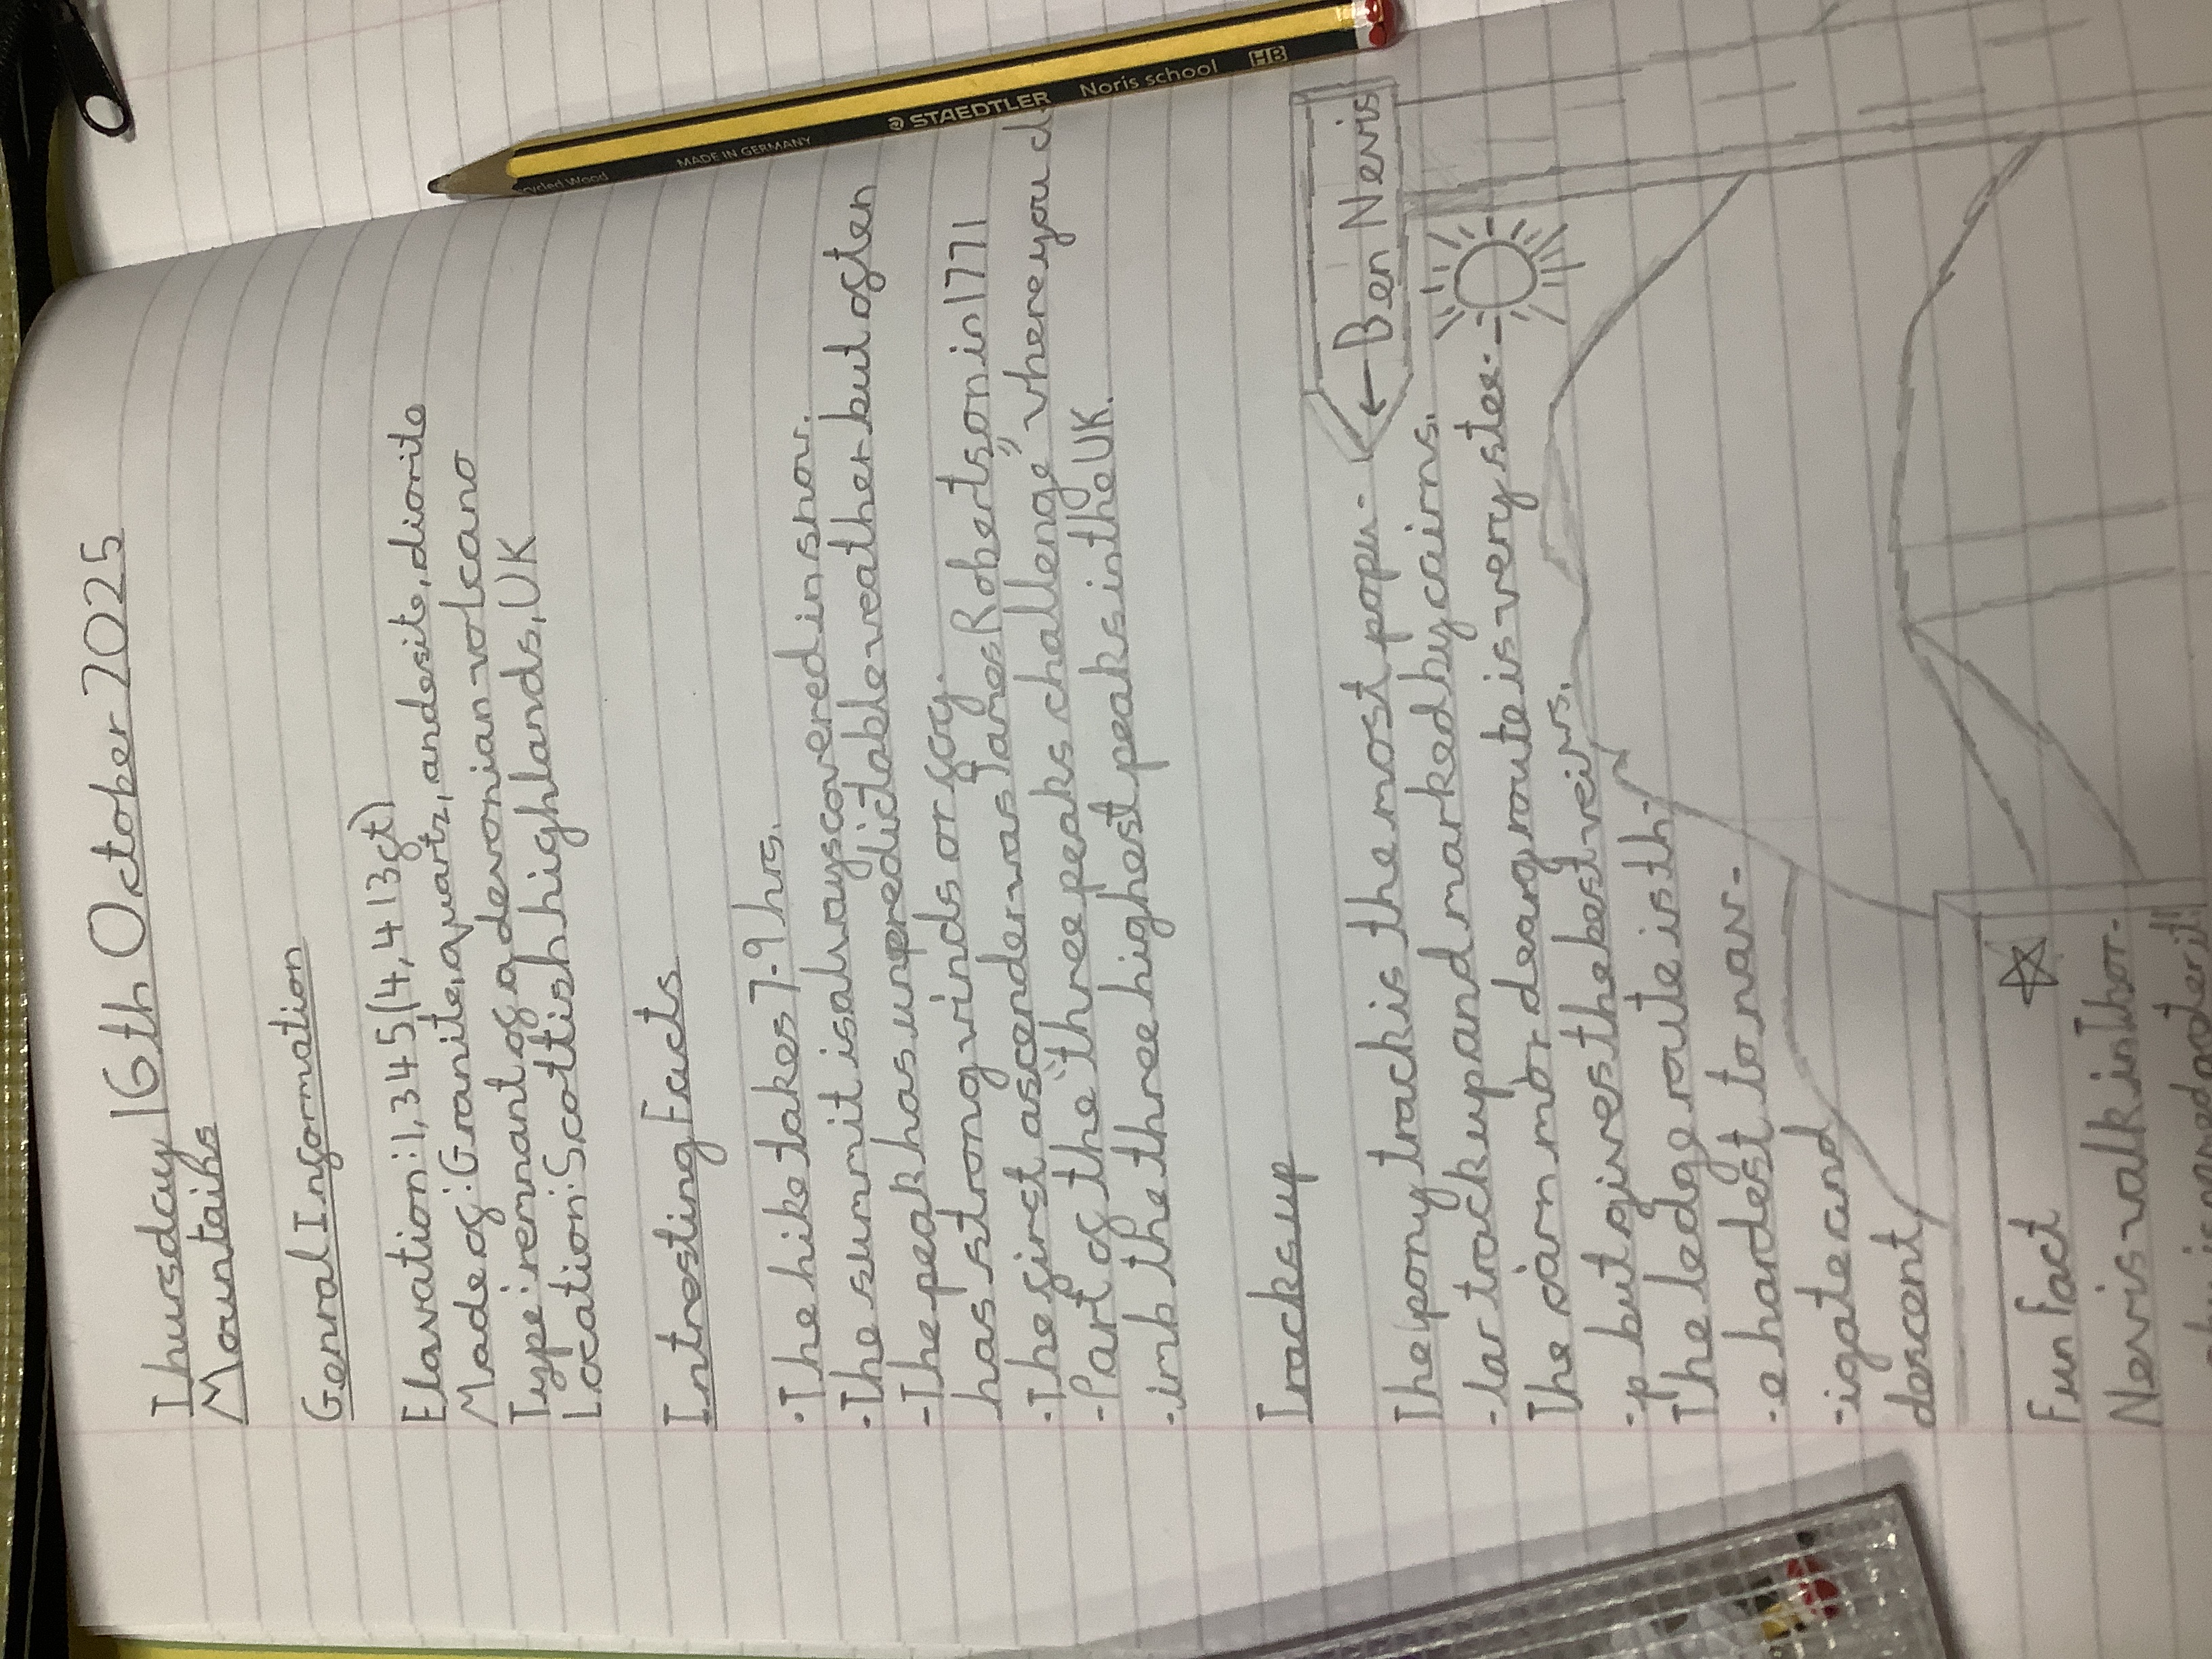 Thursday 16th October 2025
Mountains
Genral Information
Elavation: 1,345 (4,413ft)
Made of: Granite, quartz, andesite, diorite
Type: remnant of a devonian volcano
Location: Scottish highlands, UK
Intresting Facts
·The hike takes 7-9 hrs.
·The summit is always covered in snow.
-The peak has unpredictable weather but often
has strong winds or fog.
·The first ascender was James Robertson in 1771
-Part of the "three peaks challenge" where you cl
-imb the three highest peaks in the UK.
Tracks up
The pony track is the most popu-
-lar track up and marked by cairns.
The càrn mòr dearg route is very stee-
-p but gives the best veiws.
The ledge route is th-
-e hardest to nav-
-igate and
descent
← Ben Nevis
Fun Fact
Nevis walk in Thor-
named after it!
MADE IN GERMANY
STAEDTLER Noris school HB